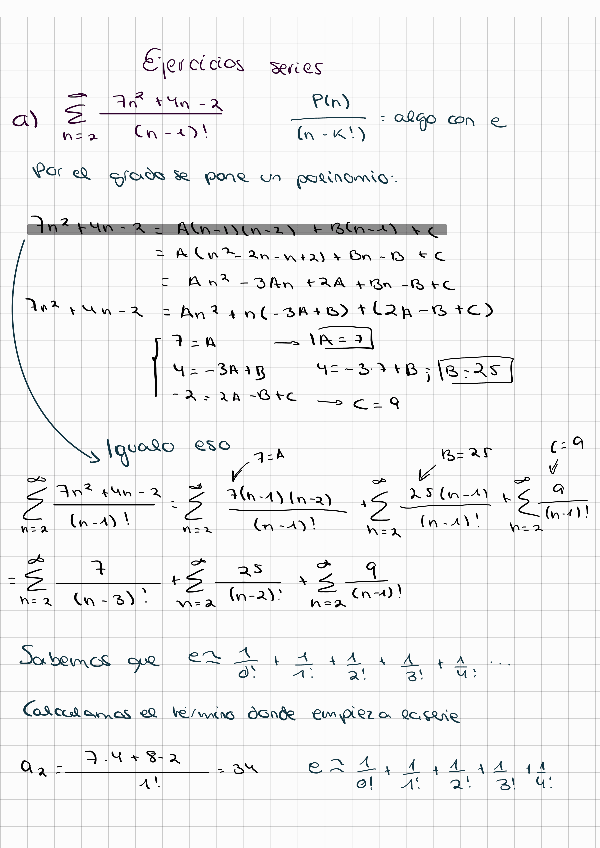 Ejercicios series
a) ∑_{n=2}^{∞} (7n² + 4n - 2)/((n-1)!)   P(n)/((n-K!)) = algo con e
Por el grado se pone un polinomio:
7n² + 4n - 2 = A(n-1)(n-2) + B(n-1) + C
= A(n² - 2n - n + 2) + Bn - B + C
= An² - 3An + 2A + Bn - B + C
7n² + 4n - 2 = An² + n(-3A+B) + (2A - B + C)
7 = A → A = 7
4 = -3A + B   4 = -3·7 + B ; B = 25
-2 = 2A - B + C → C = 9
Igualo eso   7 = A   B = 25   C = 9
∑_{n=2}^{∞} (7n² + 4n - 2)/((n-1)!) = ∑_{n=2}^{∞} 7(n-1)(n-2)/((n-1)!) + ∑_{n=2}^{∞} 25(n-1)/((n-1)!) + ∑_{n=2}^{∞} 9/((n-1)!)
= ∑_{n=2}^{∞} 7/((n-3)!) + ∑_{n=2}^{∞} 25/((n-2)!) + ∑_{n=2}^{∞} 9/((n-1)!)
Sabemos que e ≈ 1/0! + 1/1! + 1/2! + 1/3! + 1/4! ...
Calculamos el término donde empieza la serie
a₂ = (7·4 + 8 - 2)/1! = 34   e ≈ 1/0! + 1/1! + 1/2! + 1/3! + 1/4!